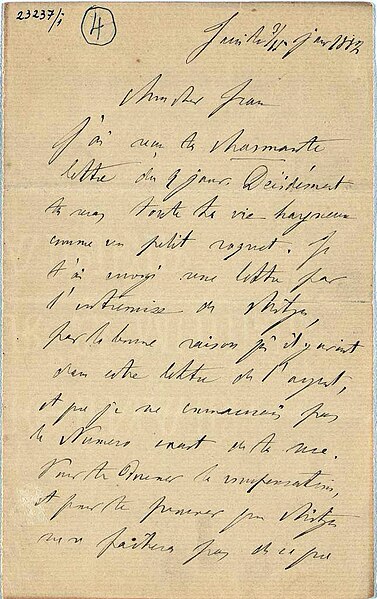 23237/1
4
Mon cher Jean
J'ai reçu ta charmante
lettre du 9 janv. Décidément
tu seras toute ta vie hargneux
comme un petit roquet. Je
t'ai envoyé une lettre par
l'entremise de
par la bonne raison qu'il y avait
dans cette lettre de l'argent,
et que je ne connaissais pas
le Numero exact de ta rue.
Pour te donner la compensation,
et pour te prouver que
ne se fâchera pas de ce que